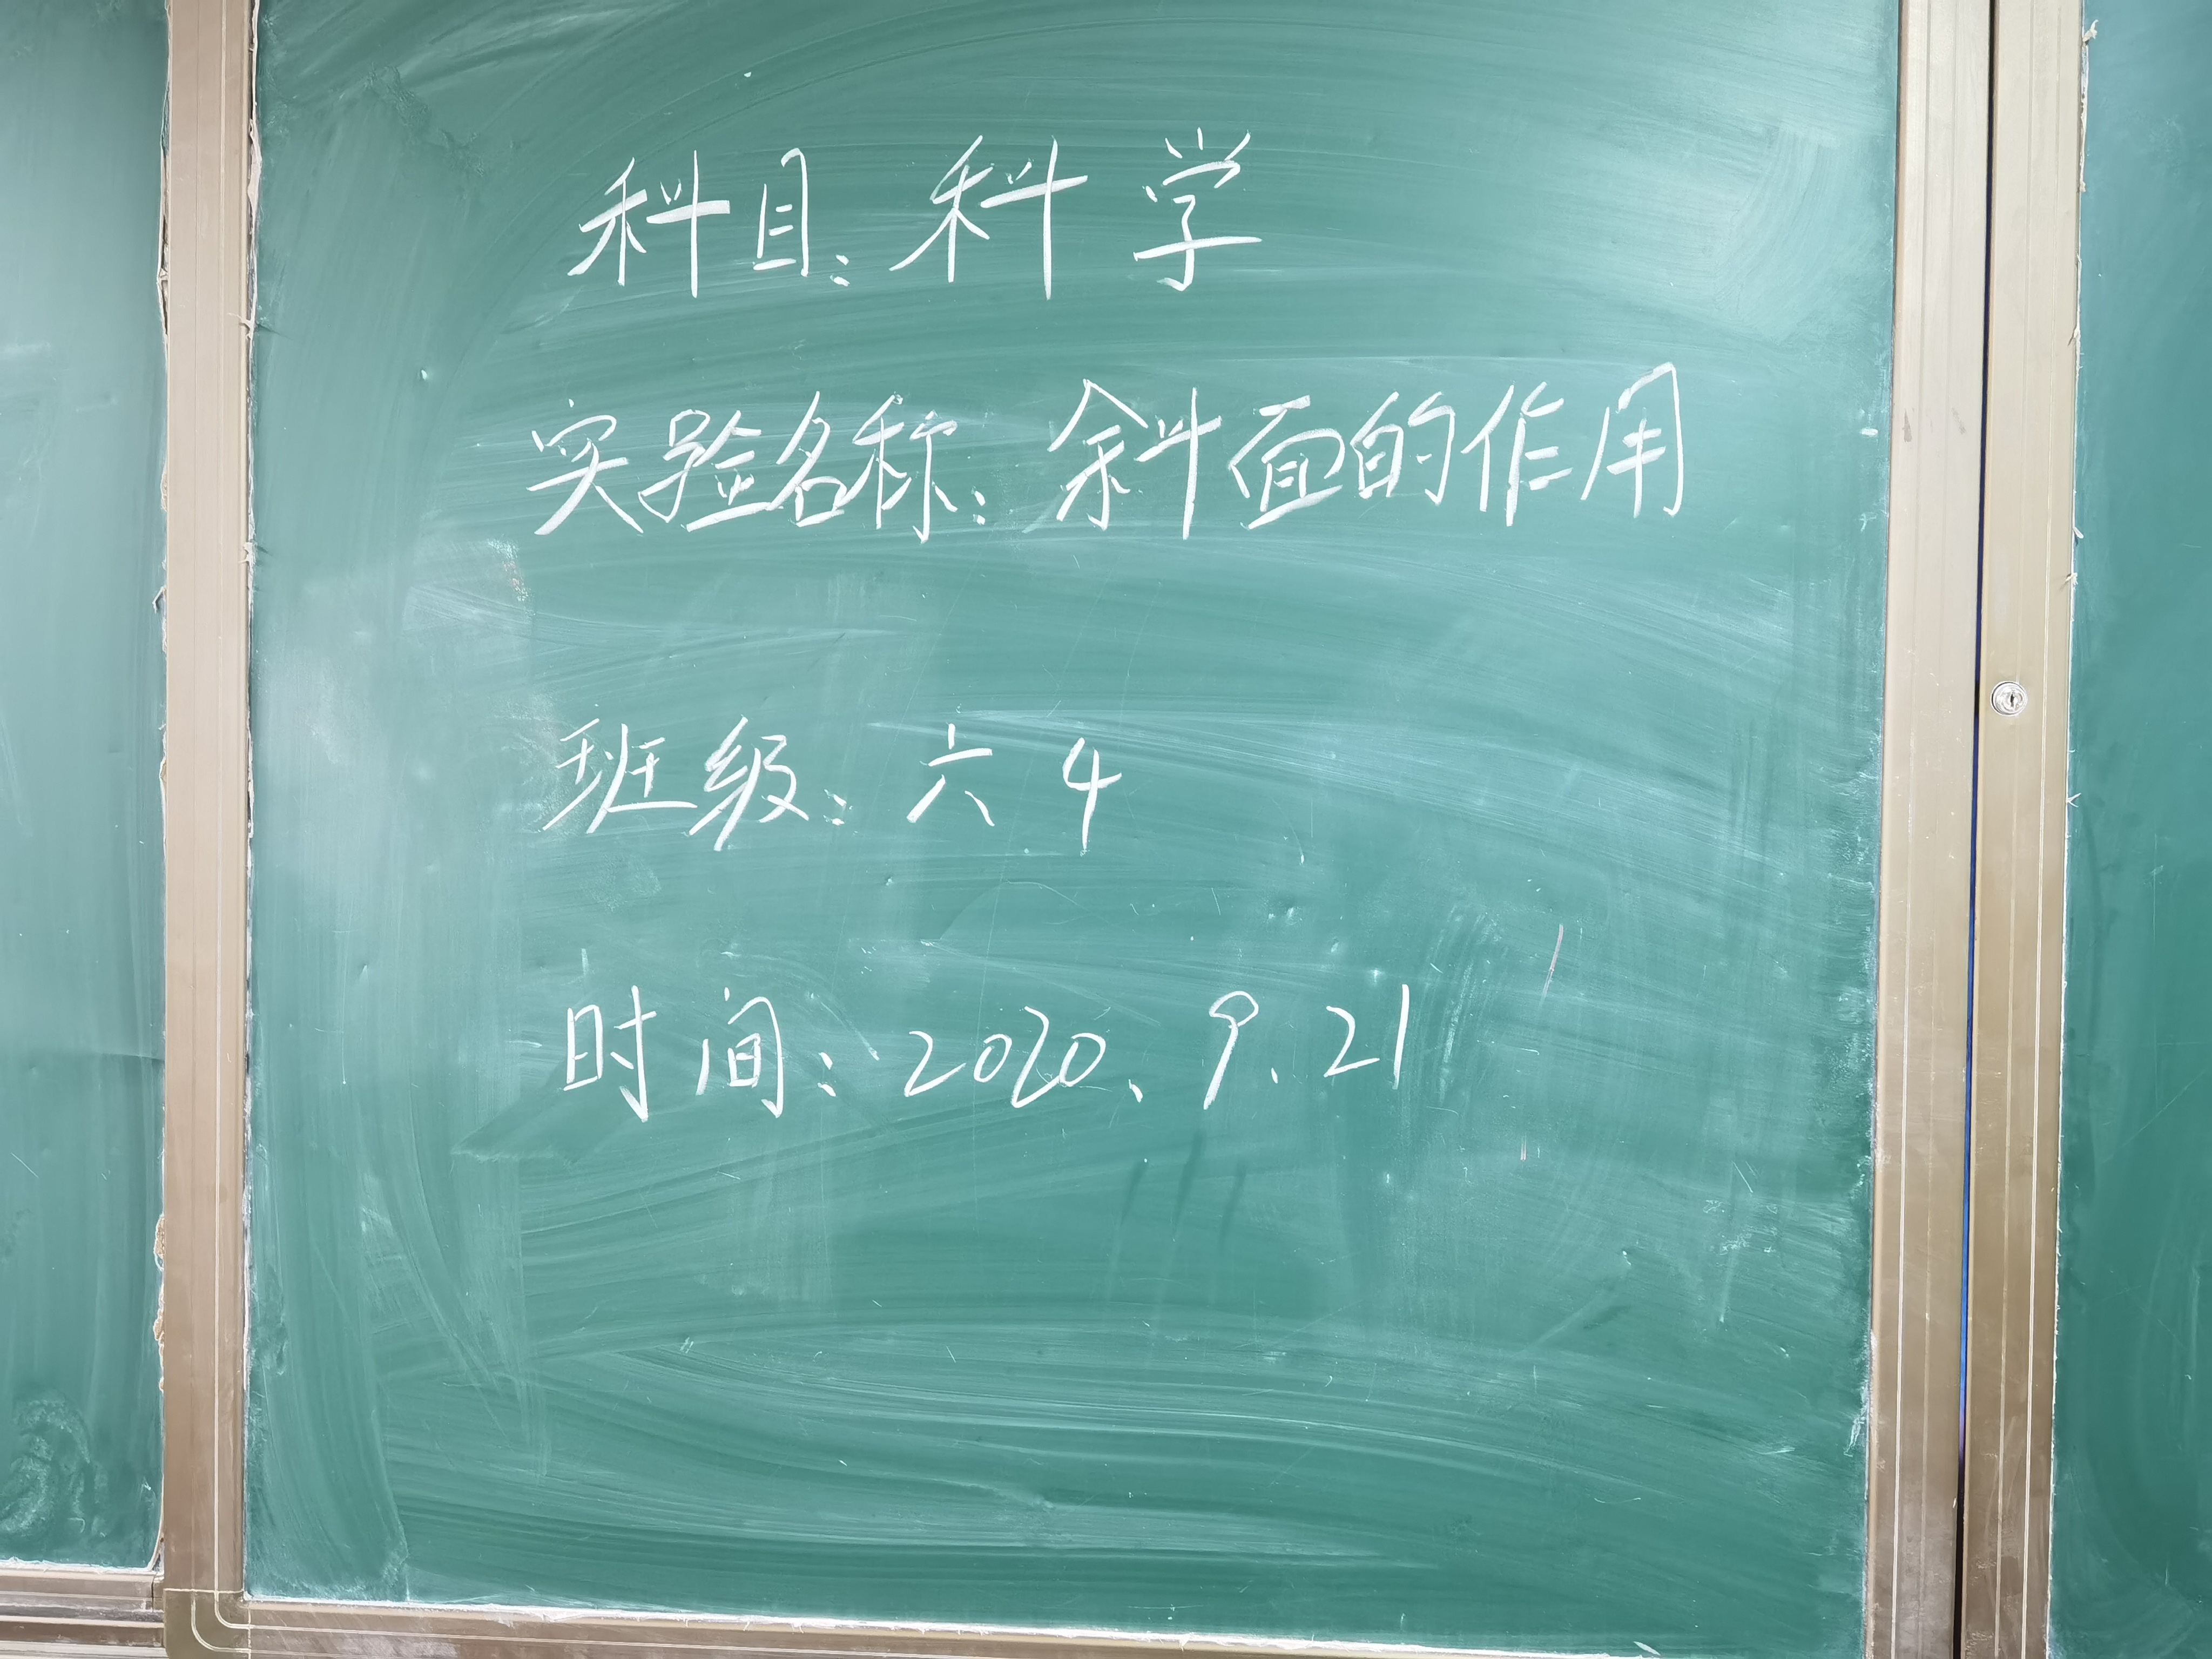 科目：科学
实验名称：斜面的作用
班级：六4
时间：2020、9.21